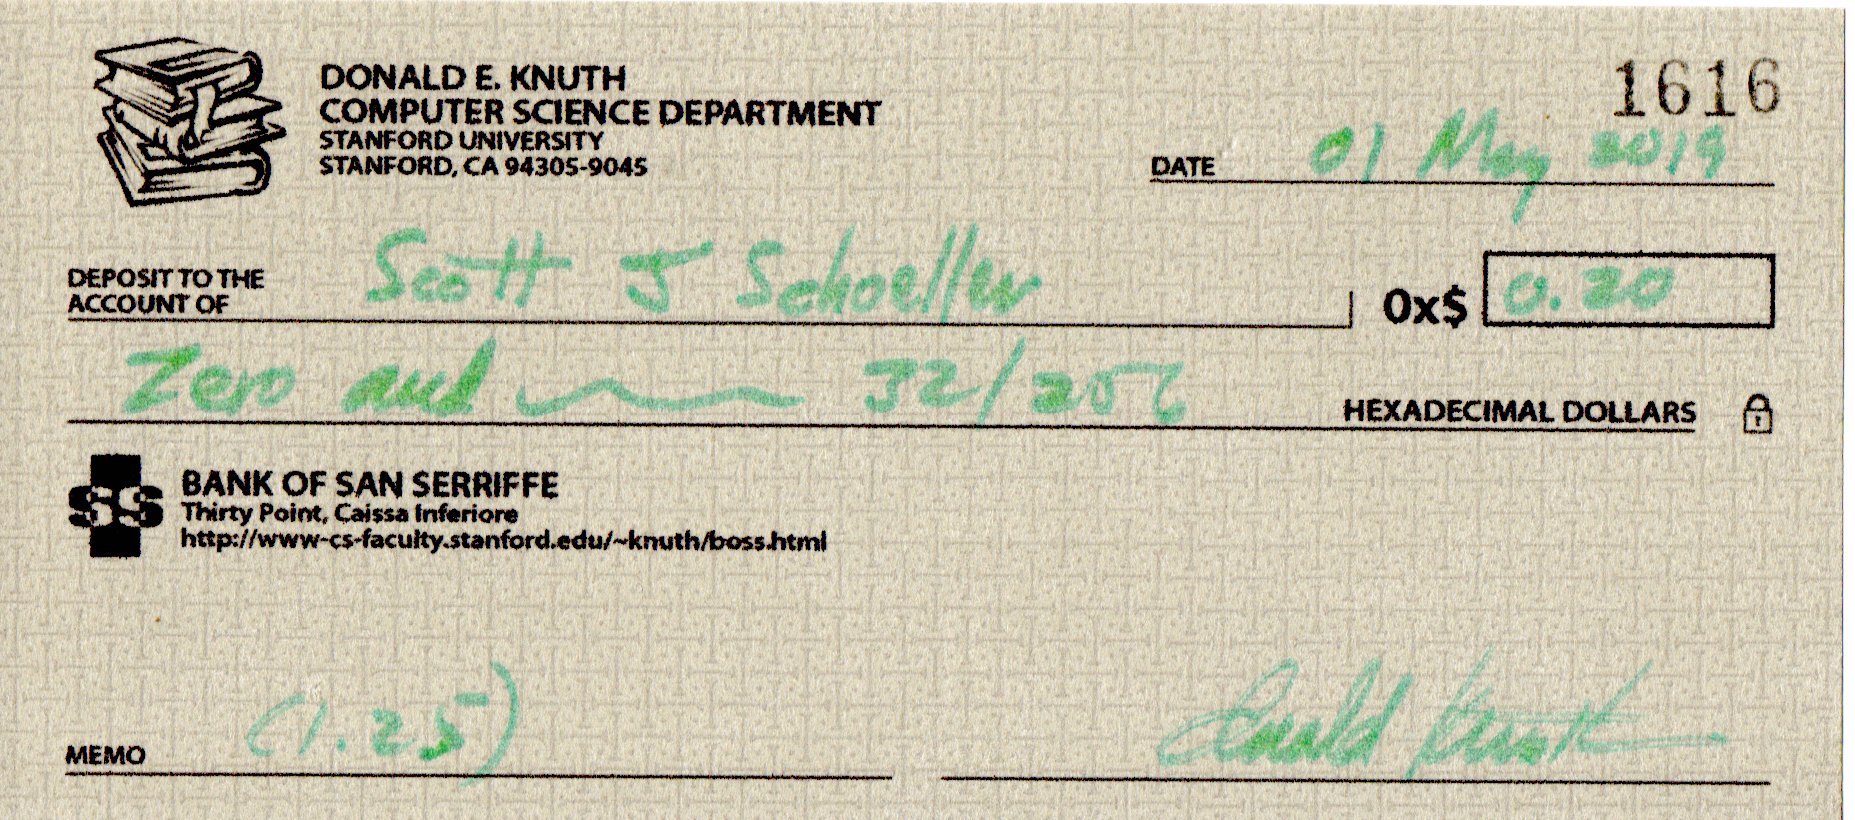 DONALD E. KNUTH
COMPUTER SCIENCE DEPARTMENT
STANFORD UNIVERSITY
STANFORD, CA 94305-9045
1616
DATE 01 May 2019
DEPOSIT TO THE
ACCOUNT OF Scott J Schoeller
0x$ 0.20
Zero and 32/256 HEXADECIMAL DOLLARS
SS
BANK OF SAN SERRIFFE
Thirty Point, Caissa Inferiore
http://www-cs-faculty.stanford.edu/~knuth/boss.html
MEMO (1.25)
Donald Knuth